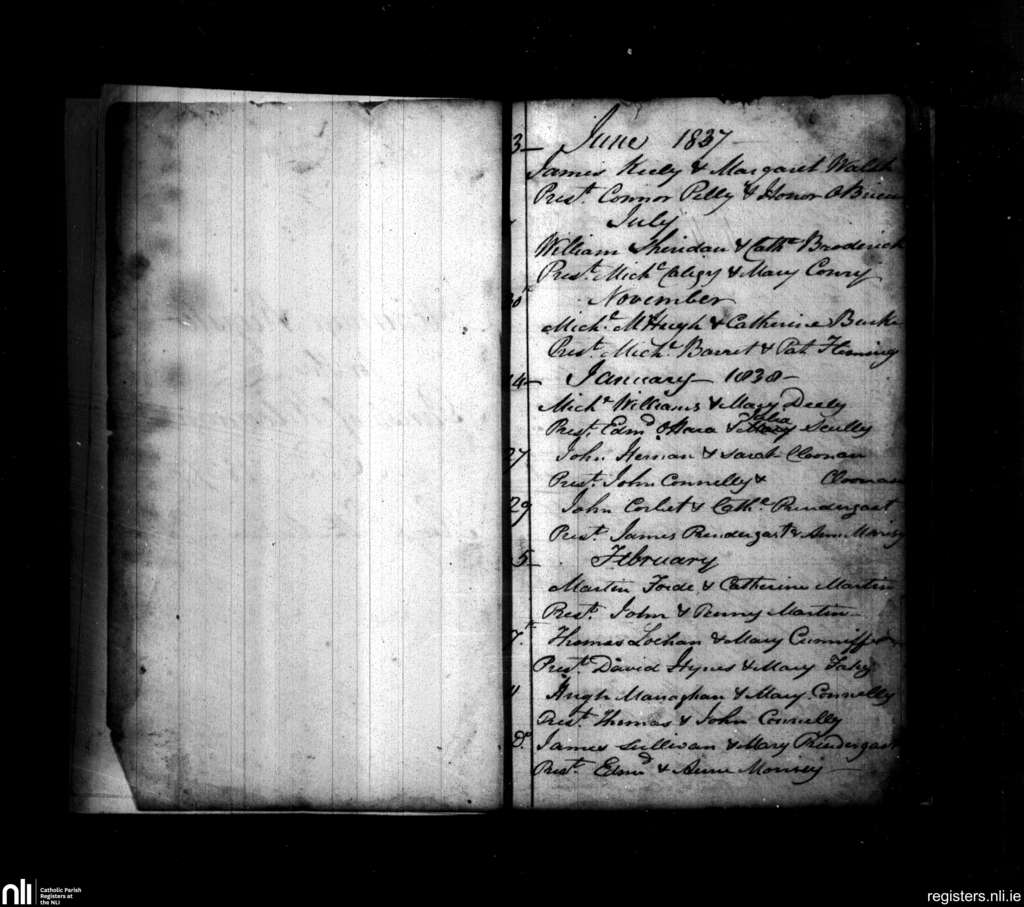 3 June 1837
James Keely & Margaret Walsh
Prest. Connor Pelly & Honor OBrien
July
William Sheridan & Cathe. Broderick
Prest. Michl. & Mary Conry
30th November
Michl. McHugh & Catherine Burke
Prest. Michl. Barret & Pat. Fleming
14 January 1838
Michl. Williams & Mary Deely
Julia
Prest. Edmd. OHara & Mary Scully
27 John Hernan & Sarah Cloonan
Prest. John Connelly & Cloonan
29 John Corbet & Cathe. Prendergast
Prest. James Prendergast & Ann Morisy
5 February
Martin Forde & Catherine Martin
Prest. John & Penny Martin
7th. Thomas Lochan & Mary Cunniffe
Prest. David Hynes & Mary Fahy
Hugh Managhan & Mary Connelly
Prest. Thomas & John Connelly
Do. James Sullivan & Mary Prendergast
Prest. Edmd. & Anne Morrisy
nli Catholic Parish
Registers at
the NLI
registers.nli.ie